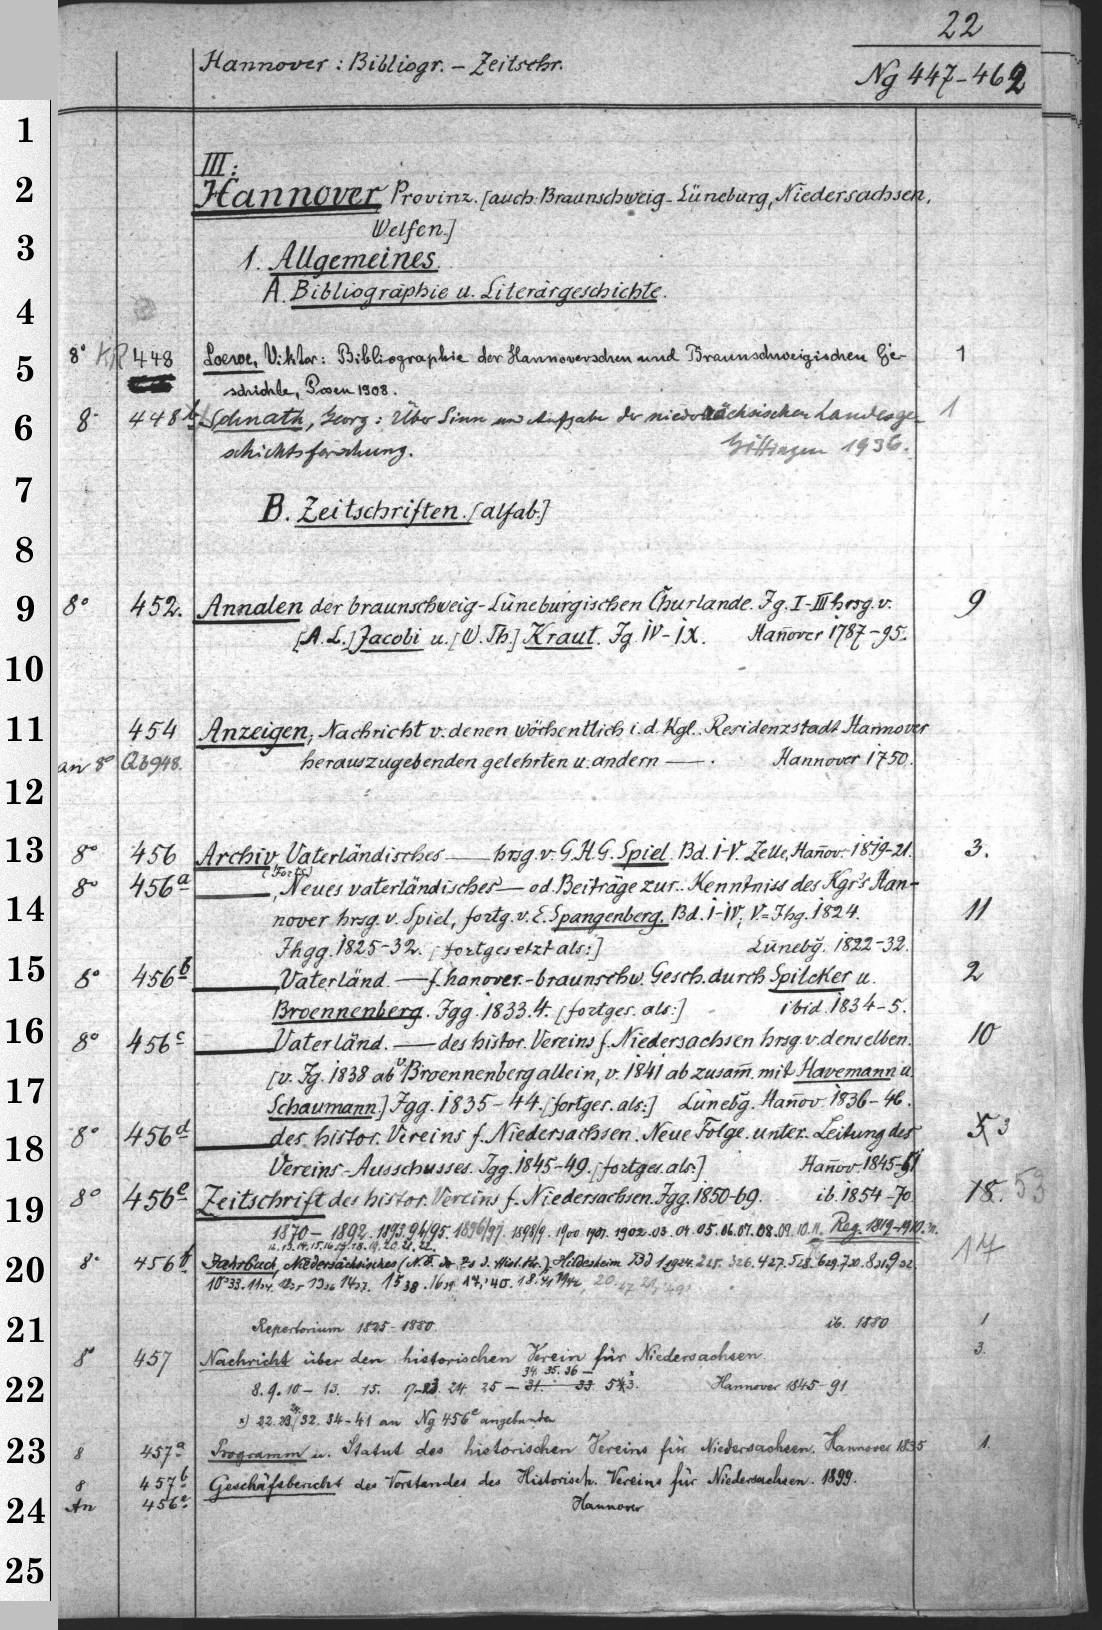 22
Hannover : Bibliogr. – Zeitschr.
Ng 447–462
III:
Hannover Provinz. [auch: Braunschweig-Lüneburg, Niedersachsen,
Welfen.]
1. Allgemeines
A. Bibliographie u. Literärgeschichte.
8° KR 448 Loewe, Viktor: Bibliographie der Hannoverschen und Braunschweigischen Ge- 1
schichte, Posen 1908.
8° 448b Schnath, Georg: Über Sinn und Aufgabe der niedersächsischen Landesge- 1
schichtsforschung. Göttingen 1936.
B. Zeitschriften. [alfab.]
8° 452. Annalen der braunschweig-Lüneburgischen Churlande. Jg. I–III hrsg. v. 9
[A. L.] Jacobi u. [W. Th.] Kraut. Jg. IV–IX. Hañover 1787–95.
454 Anzeigen, Nachricht v. denen wöchentlich i. d. Kgl. Residenzstadt Hannover
an 8° Qb 948. herauszugebenden gelehrten u. andern —. Hannover 1750.
8° 456 Archiv, Vaterländisches — hrsg. v. G. H. G. Spiel. Bd. I–V. Zelle, Hañov. 1819–21. 3.
8° 456a —, Neues vaterländisches — od. Beiträge zur.. Kenntniss des Kgr's Han-
nover hrsg. v. Spiel, fortg. v. E. Spangenberg. Bd. I–IV, V=Jhg. 1824. 11
Jhgg. 1825–32. [fortgesetzt als:] Lünebg. 1822–32.
8° 456b — Vaterländ. — f. hanover.-braunschw. Gesch. durch Spilcker u. 2
Broennenberg. Jgg. 1833.4. [fortges. als:] ibid. 1834–5.
8° 456c — Vaterländ. — des histor. Vereins f. Niedersachsen hrsg. v. denselben. 10
[v. Jg. 1838 ab v. Broennenberg allein, v. 1841 ab zusam̄. mit Havemann u.
Schaumann.] Jgg. 1835–44. [fortges. als:] Lünebg. Hañov. 1836–46.
8° 456d — des histor. Vereins f. Niedersachsen. Neue Folge. unter Leitung des 5 3
Vereins-Ausschusses. Jgg. 1845–49. [fortges. als:] Hañov. 1845–51
8° 456e Zeitschrift des histor. Vereins f. Niedersachsen. Jgg. 1850–69. ib. 1854–70 18. 53
1870 – 1892. 1893. 94/95. 1896/97. 1898/9. 1900 1901. 1902. 03. 04. 05. 06. 07. 08. 09. 10. 11. Reg. 1819–1910.
12. 13. 14. 15. 16. 17. 18. 19. 20. 21. 22.
8° 456f Jahrbuch, Niedersächsisches Hildesheim Bd 1.1924. 17
Repertorium 1825–1880. ib. 1880 1
8° 457 Nachricht über den historischen Verein für Niedersachsen. 3.
34. 35. 36 –
8. 9. 10 – 13. 15. 17–23. 24. 25 – 31. 33. Hannover 1845–91
x) 22. 23/32. 34–41 an Ng 456e angebunden
8 457a Programm u. Statut des historischen Vereins für Niedersachsen. Hannover 1835 1.
8 457b Geschäftsbericht des Vorstandes des Historisch. Vereins für Niedersachsen. 1899.
An 456e Hannover
1
2
3
4
5
6
7
8
9
10
11
12
13
14
15
16
17
18
19
20
21
22
23
24
25